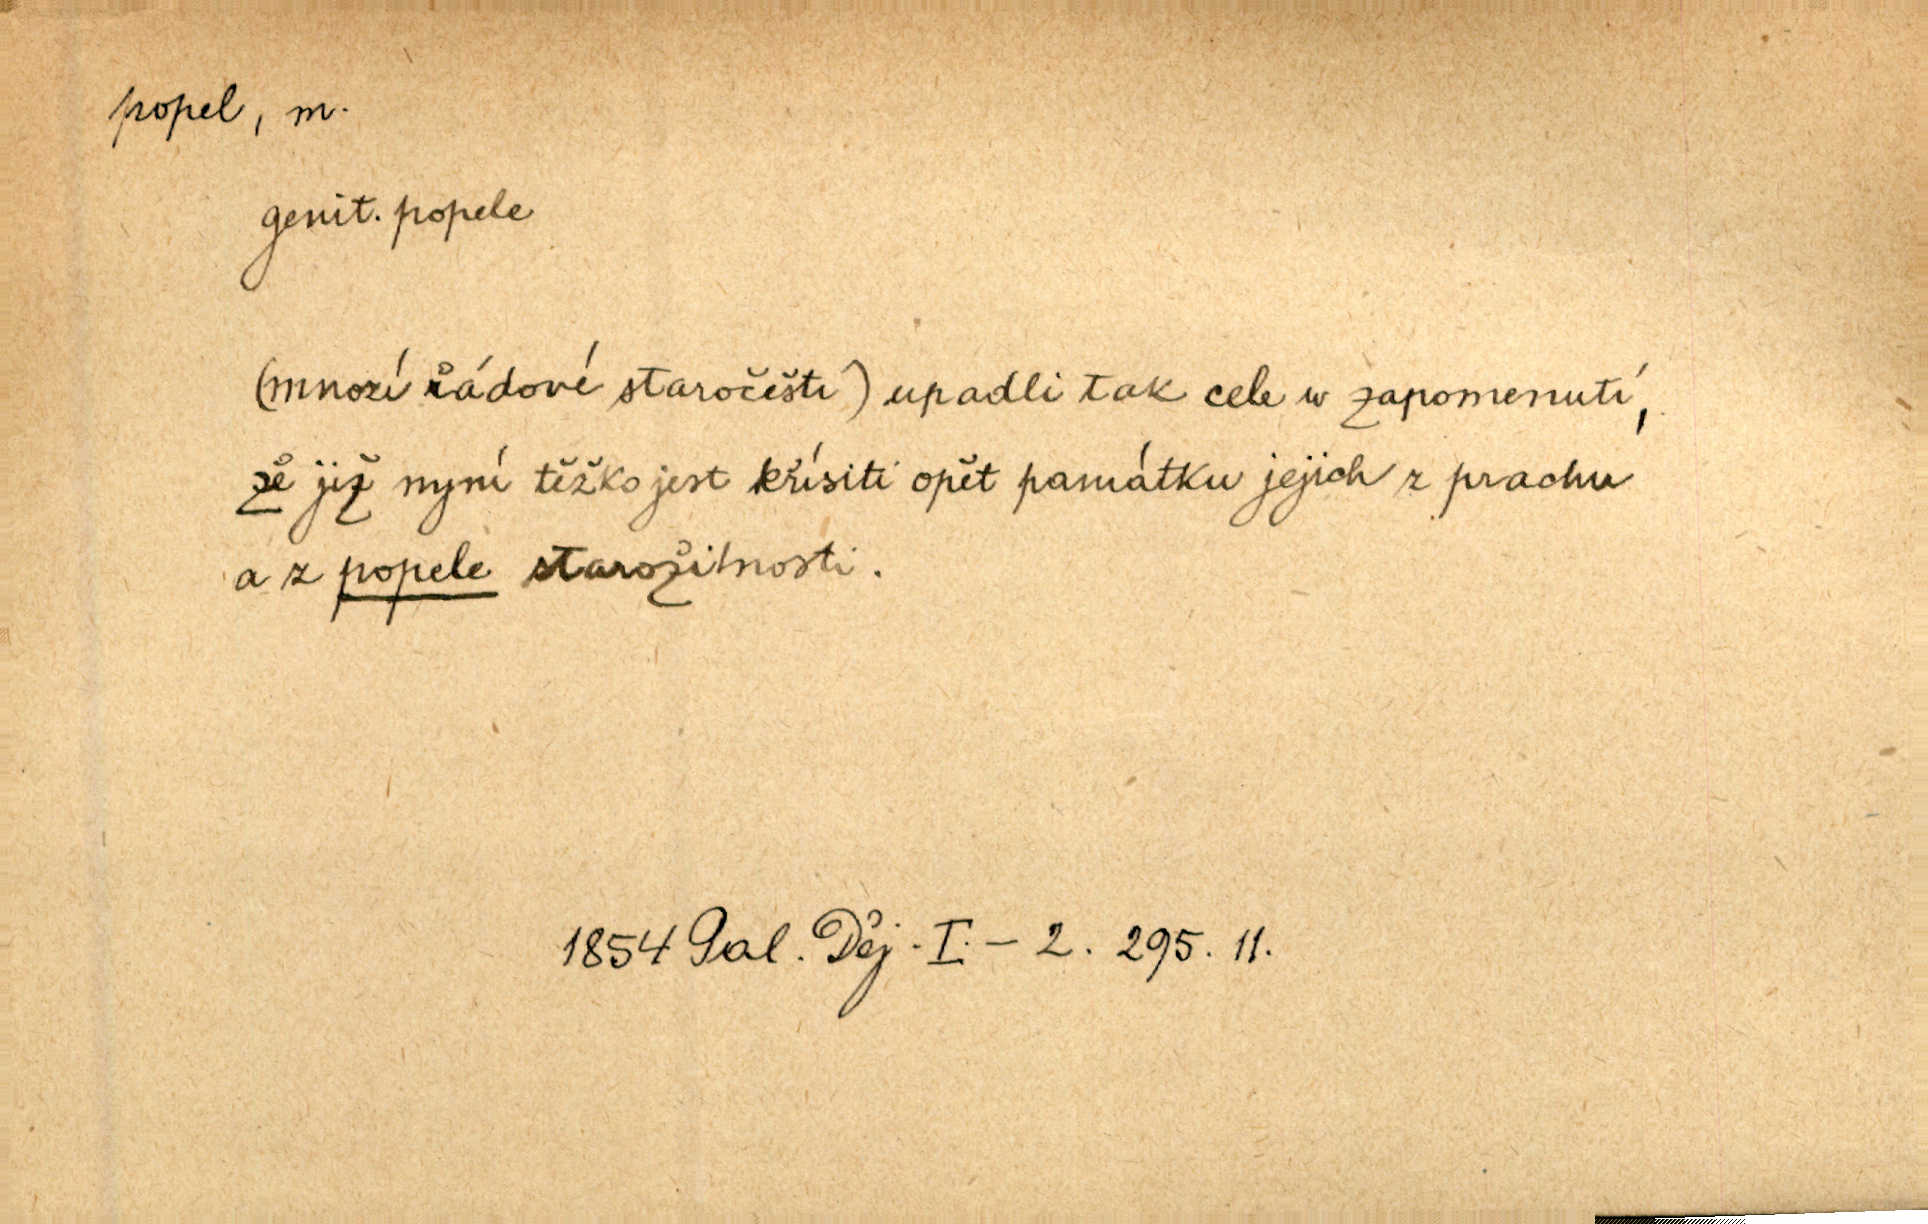 popel, m.
genit. popele
(mnozí řádové staročeští) upadli tak cele w zapomenutí,
že již nyní těžko jest křísiti opět památku jejich z prachu
a z popele starožitnosti.
1854 Pal. Děj. I. – 2. 295. 11.